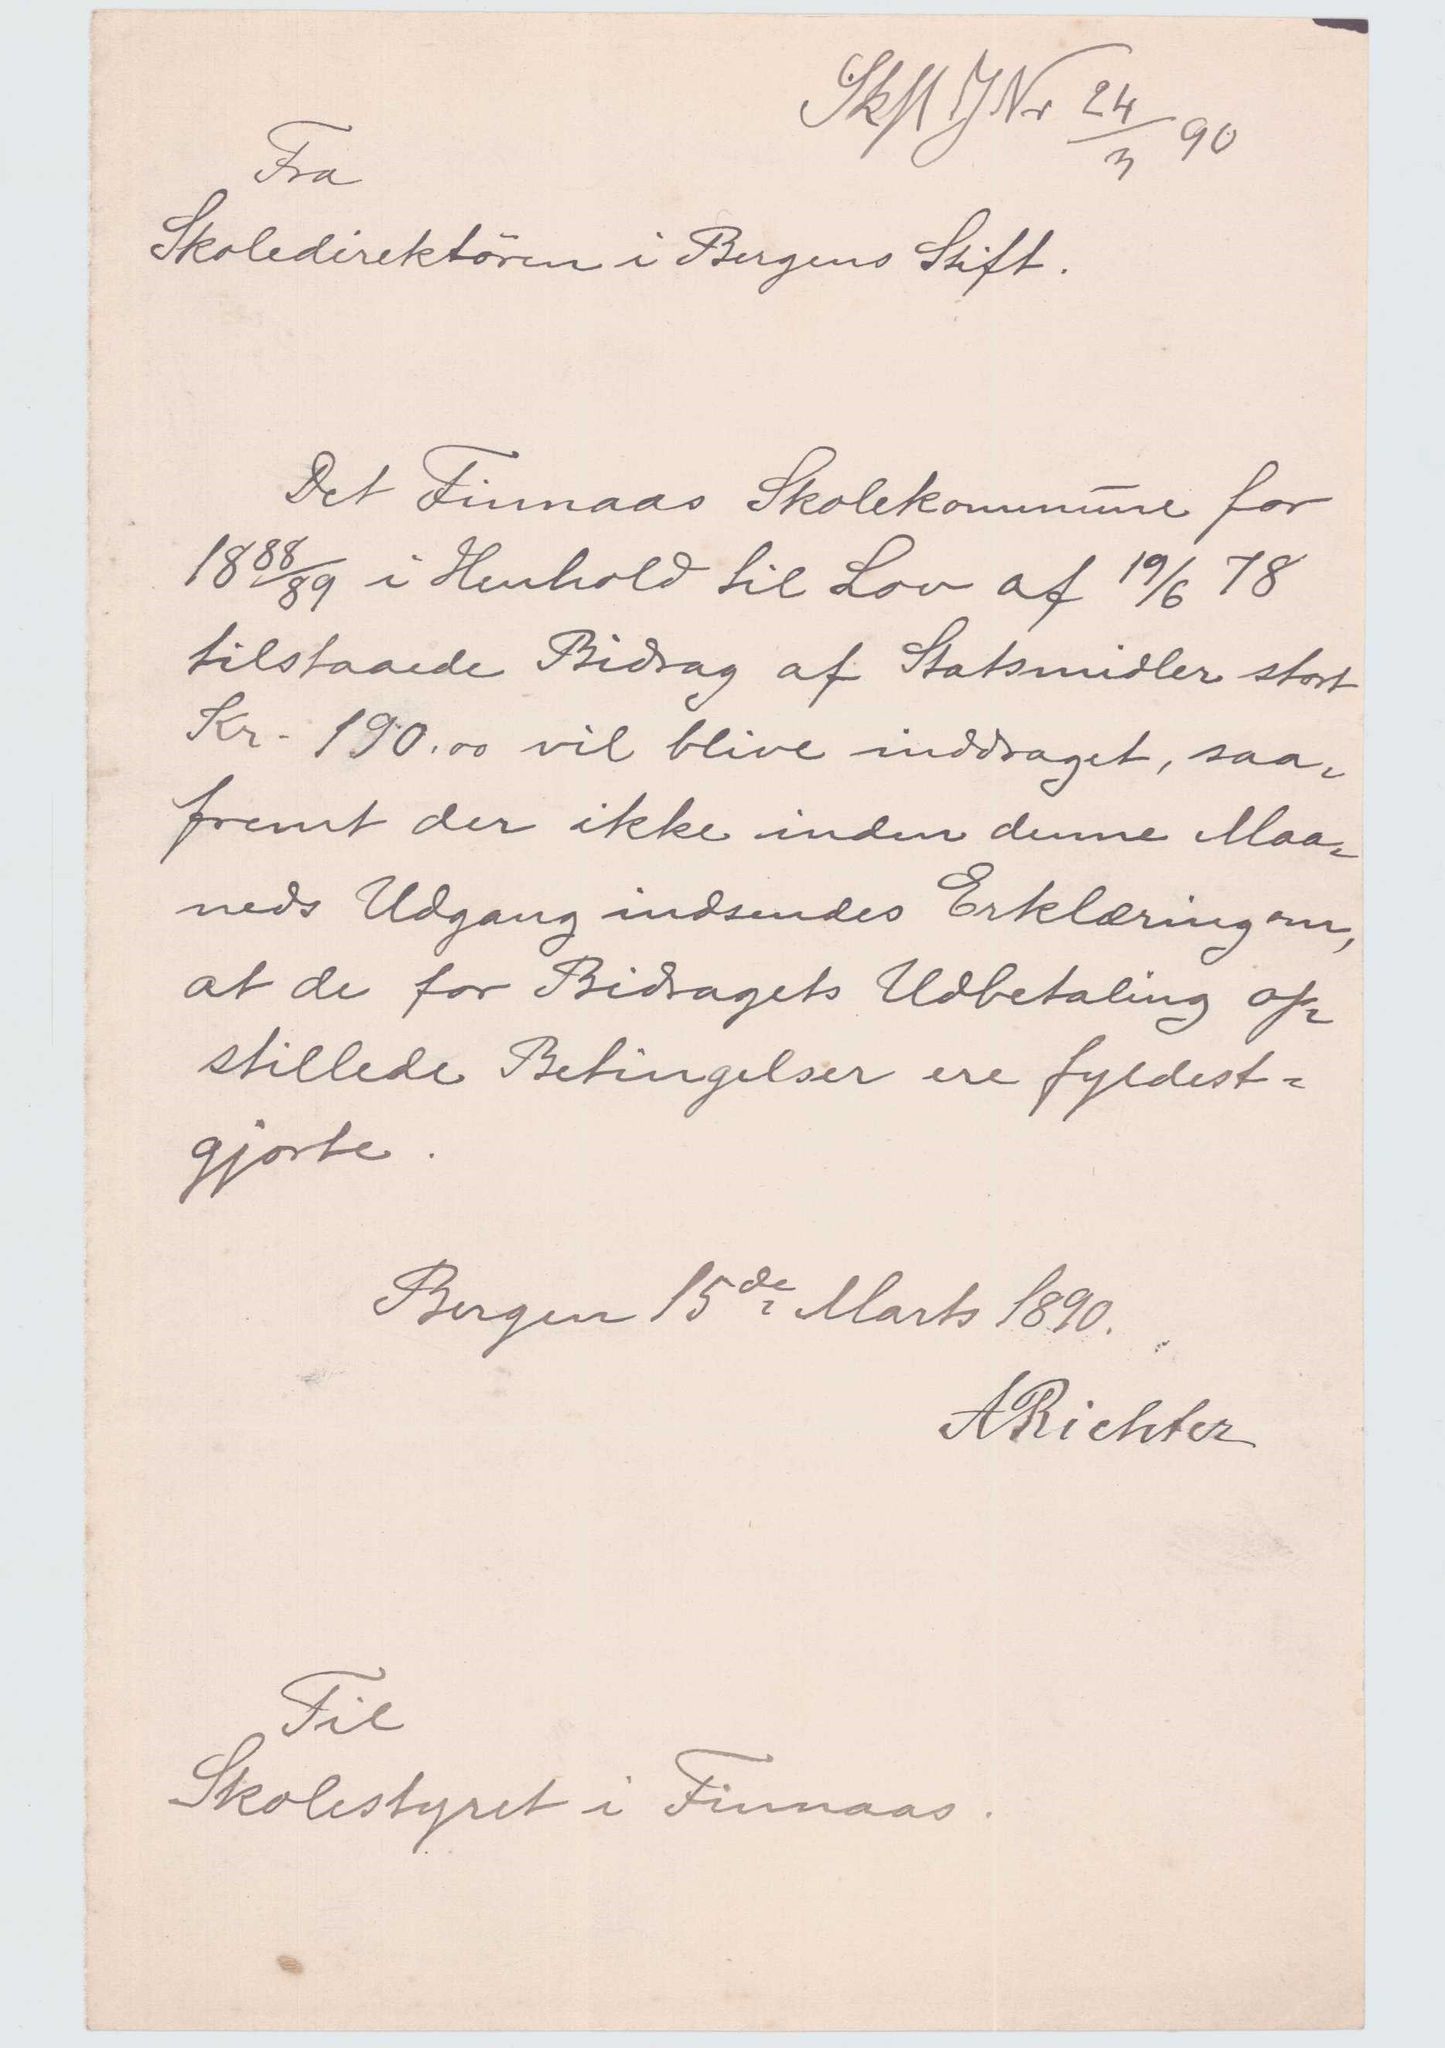 Skst JNr 24/3 90
Fra
Skoledirektören i Bergens Stift.
Det Finnaas Skolekommune for
18 88/89 i Henhold til Lov af 19/6 78
tilstaaede Bidrag af Statsmidler stort
Kr. 190.00 vil blive inddraget, saa-
fremt der ikke inden denne Maa-
neds Udgang indsendes Erklæring om,
at de for Bidragets Udbetaling op-
stillede Betingelser ere fyldest-
gjorte.
Bergen 15de Marts 1890.
A Richter
Til
Skolestyret i Finnaas.